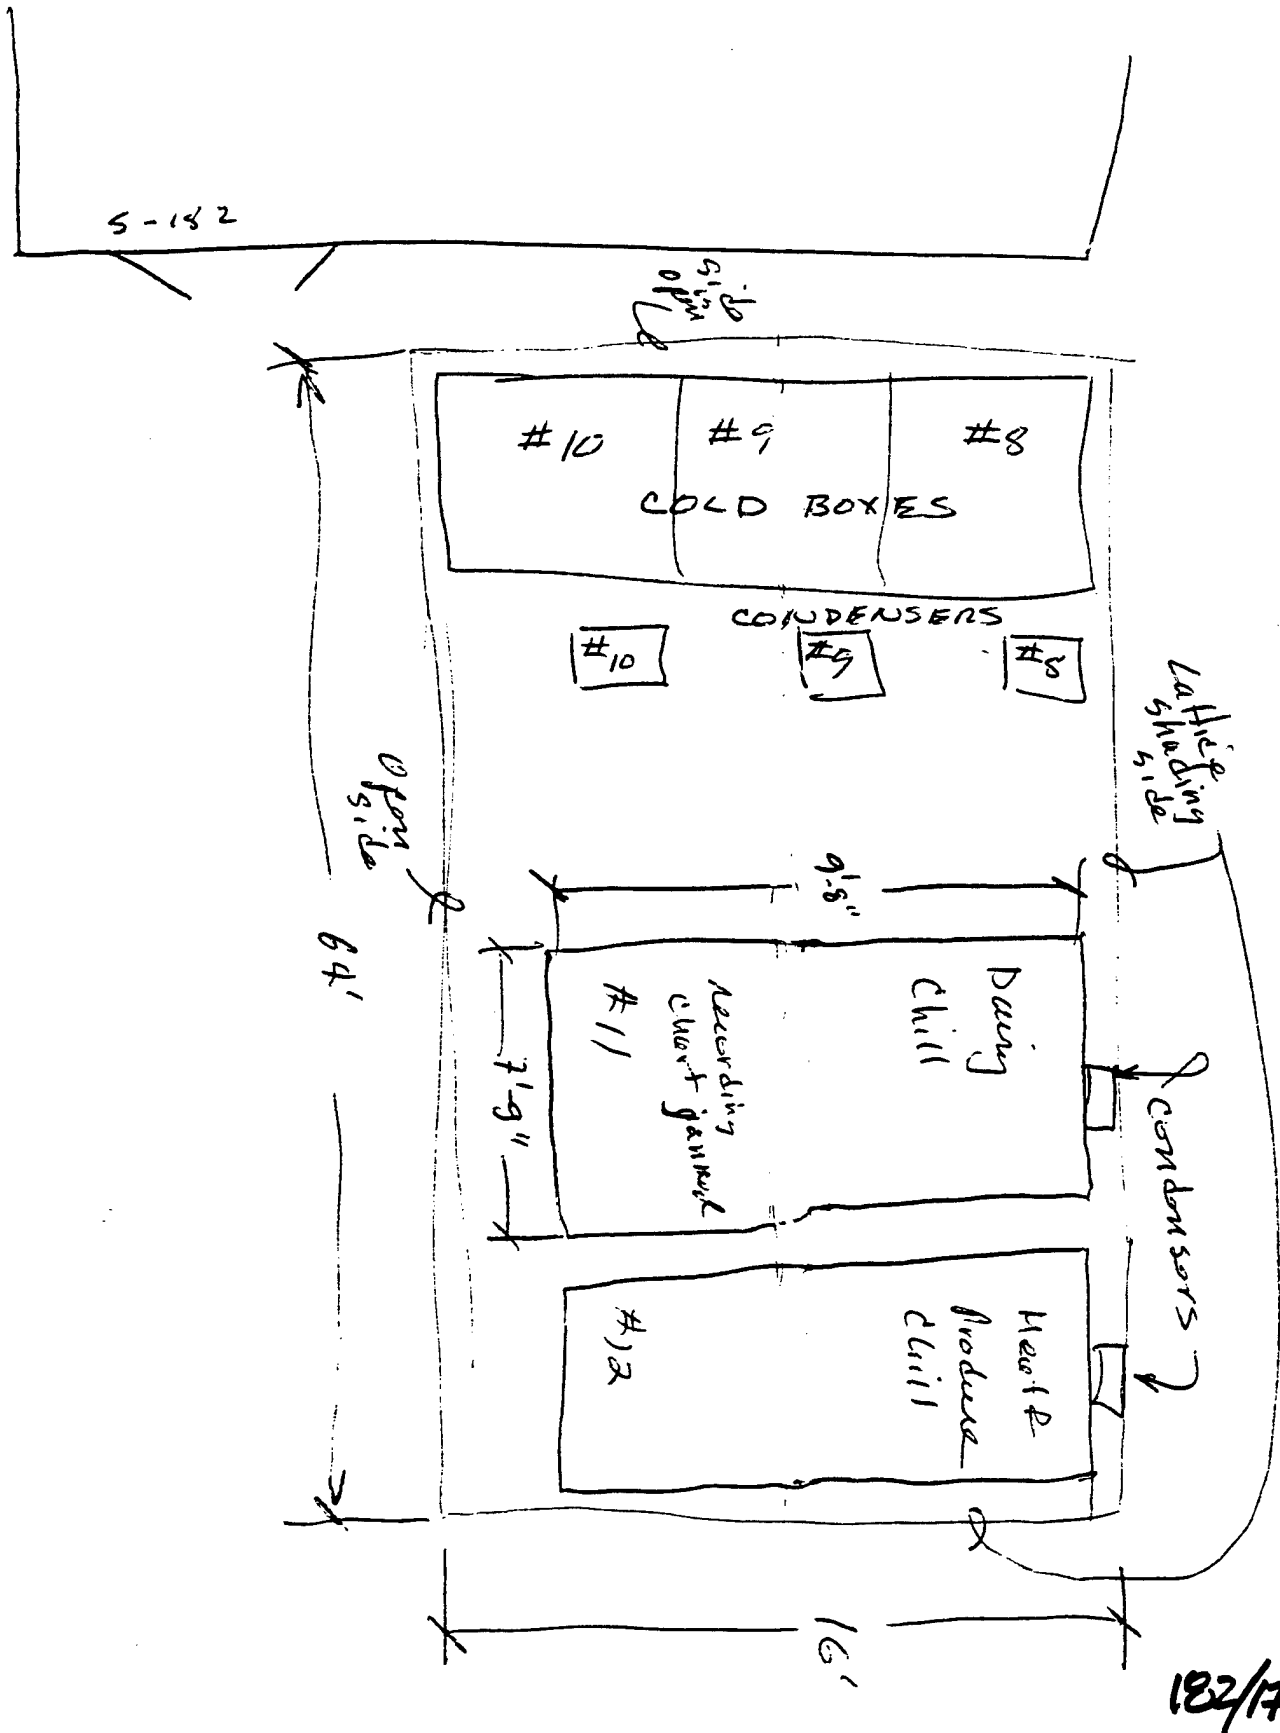 S-182
Open
Side
#10
#9
#8
COLD BOXES
CONDENSERS
#10
#9
#8
Lattice
shading
side
Open
Side
9'-8"
64'
Dairy
Chill
recording
chart jammed
#11
7'-9"
Condensors
Meat &
Produce
Chill
#12
16'
182/17